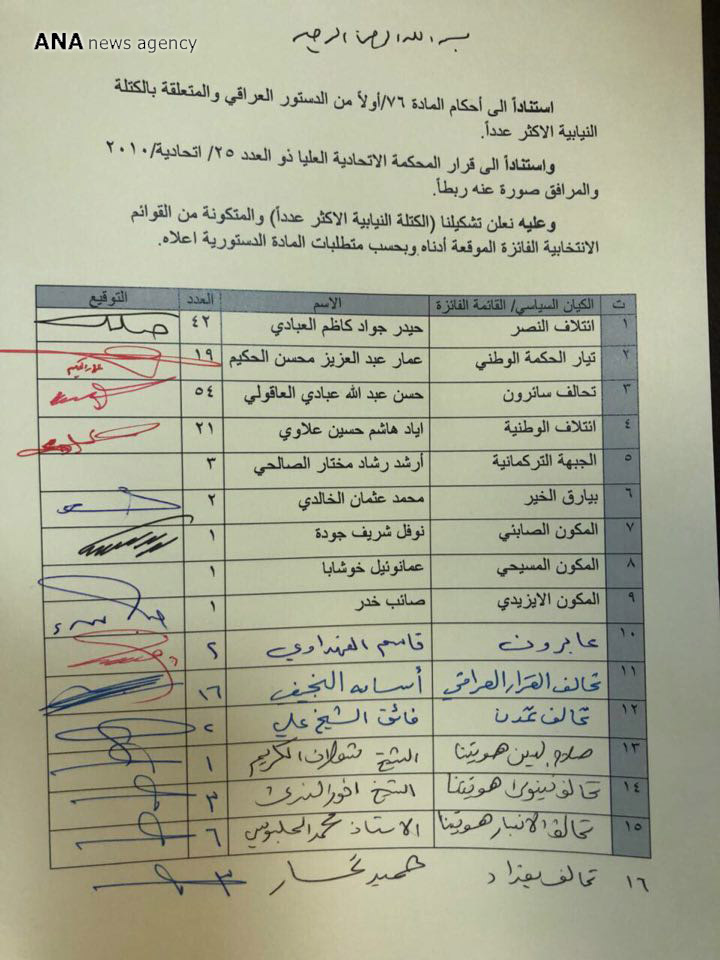 ANA news agency
بسم الله الرحمن الرحيم
استناداً الى أحكام المادة ٧٦/أولاً من الدستور العراقي والمتعلقة بالكتلة
النيابية الاكثر عدداً.
واستناداً الى قرار المحكمة الاتحادية العليا ذو العدد ٢٥/ اتحادية/٢٠١٠
والمرافق صورة عنه ربطاً.
وعليه نعلن تشكيلنا (الكتلة النيابية الاكثر عدداً) والمتكونة من القوائم
الانتخابية الفائزة الموقعة أدناه وبحسب متطلبات المادة الدستورية اعلاه.
ت الكيان السياسي/ القائمة الفائزة الاسم العدد التوقيع
١ ائتلاف النصر حيدر جواد كاظم العبادي ٤٢
٢ تيار الحكمة الوطني عمار عبد العزيز محسن الحكيم ١٩
٣ تحالف سائرون حسن عبد الله عبادي العاقولي ٥٤
٤ ائتلاف الوطنية اياد هاشم حسين علاوي ٢١
٥ الجبهة التركمانية أرشد رشاد مختار الصالحي ٣
٦ بيارق الخير محمد عثمان الخالدي ٢
٧ المكون الصابئي نوفل شريف جودة ١
٨ المكون المسيحي عمانوئيل خوشابا ١
٩ المكون الايزيدي صائب خدر ١
١٠ عابرون قاسم الفهداوي ٢
١١ تحالف القرار العراقي أسامه النجيفي ١٦
١٢ تحالف تمدن فائق الشيخ علي ٢
١٣ صلاح الدين هويتنا الشيخ الكريم ١
١٤ تحالف نينوى هويتنا الشيخ ٣
١٥ تحالف الانبار هويتنا الاستاذ محمد الحلبوسي ٦
١٦ تحالف بغداد ٣